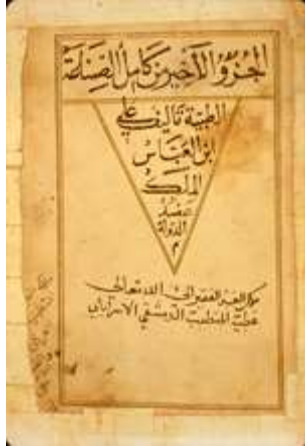 الجزؤ الأخير من كامل الصناعة
الطبية تأليف علي
ابن العباس
الملك
عضد
الدولة
م
العبد الفقير الى الله تعالى
عطية المتطبب الدمشقي